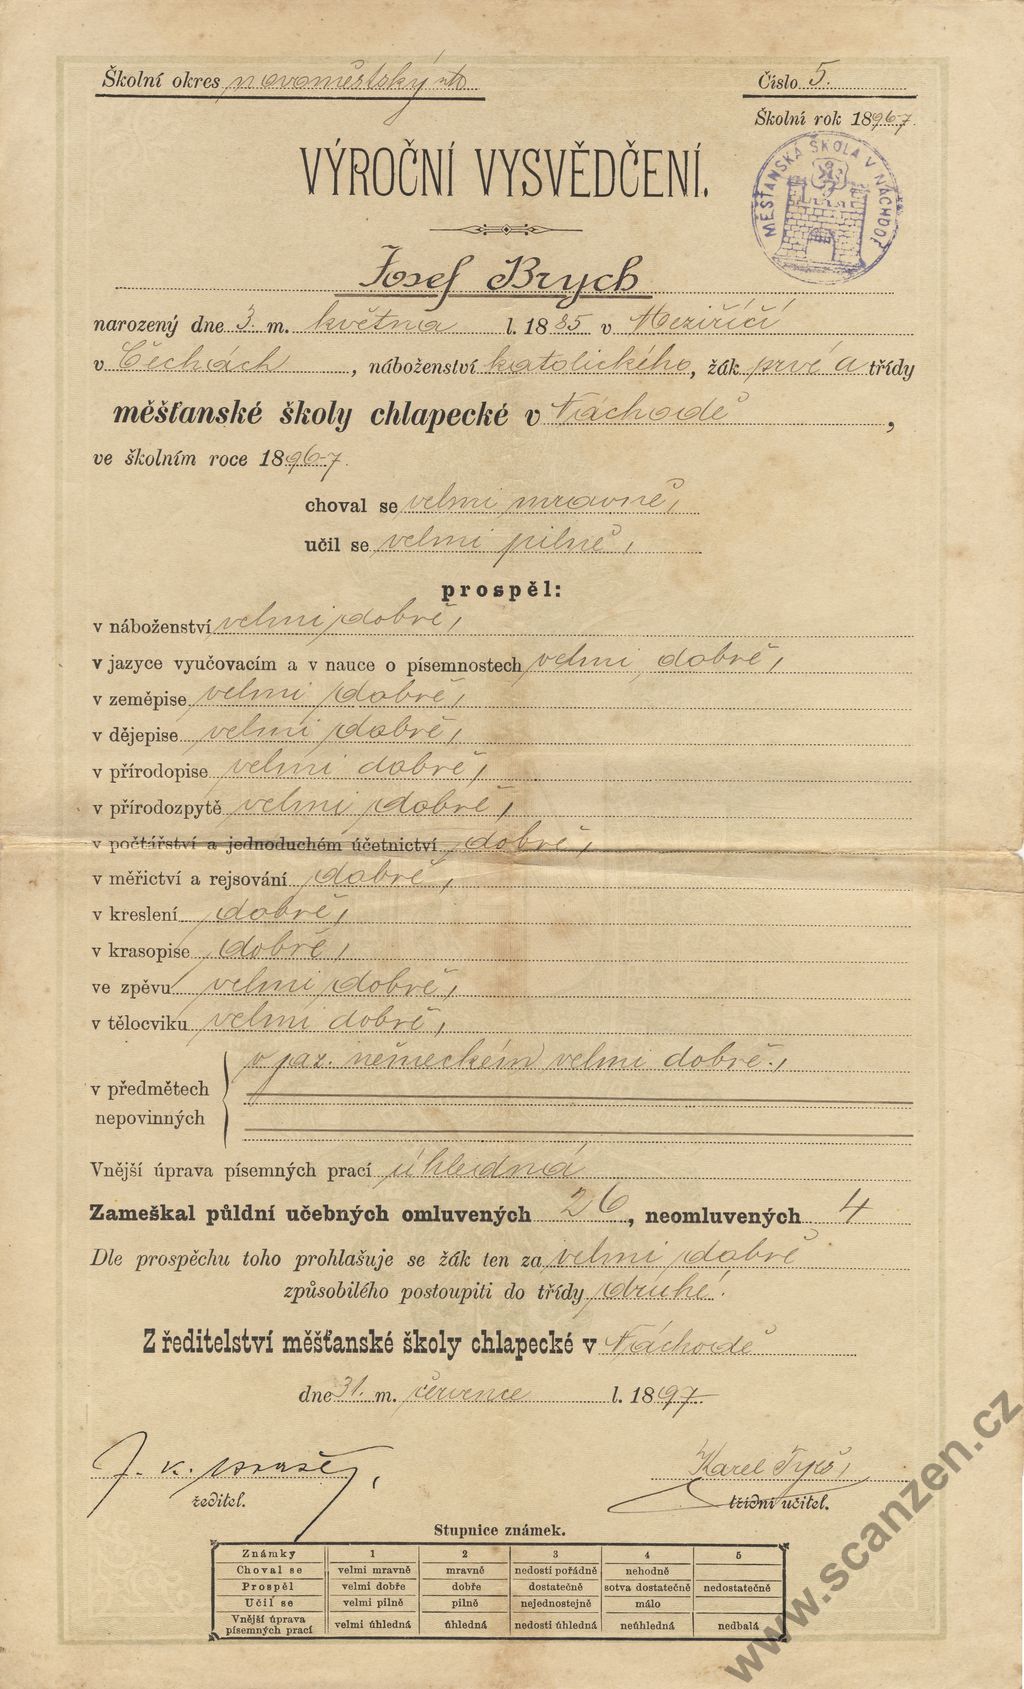 Školní okres novoměstský n/M
Číslo 5.
Školní rok 1896-7.
VÝROČNÍ VYSVĚDČENÍ.
MĚŠŤANSKÁ ŠKOLA V NÁCHODĚ
Josef Brych
narozený dne 3. m. května l. 1885 v Meziříčí
v Čechách, náboženství katolického, žák prvé a třídy
měšťanské školy chlapecké v Náchodě,
ve školním roce 1896-7.
choval se velmi mravně,
učil se velmi pilně,
prospěl:
v náboženství velmi dobře,
v jazyce vyučovacím a v nauce o písemnostech velmi dobře,
v zeměpise velmi dobře,
v dějepise velmi dobře,
v přírodopise velmi dobře,
v přírodozpytě velmi dobře,
v počtářství a jednoduchém účetnictví dobře,
v měřictví a rejsování dobře,
v kreslení dobře,
v krasopise dobře,
ve zpěvu velmi dobře,
v tělocviku velmi dobře,
v předmětech nepovinných v jaz. německém velmi dobře.,
Vnější úprava písemných prací úhledná
Zameškal půldní učebných omluvených 26, neomluvených 4
Dle prospěchu toho prohlašuje se žák ten za velmi dobře
způsobilého postoupiti do třídy druhé.
Z ředitelství měšťanské školy chlapecké v Náchodě
dne 31. m. července l. 1897
J. K. Hraše, Karel
ředitel. třídní učitel.
Stupnice známek.
Známky 1 2 3 4 5
Choval se velmi mravně mravně nedosti pořádně nehodně
Prospěl velmi dobře dobře dostatečně sotva dostatečně nedostatečně
Učil se velmi pilně pilně nejednostejně málo
Vnější úprava písemných prací velmi úhledná úhledná nedosti úhledná neúhledná nedbalá
www.scanzen.cz